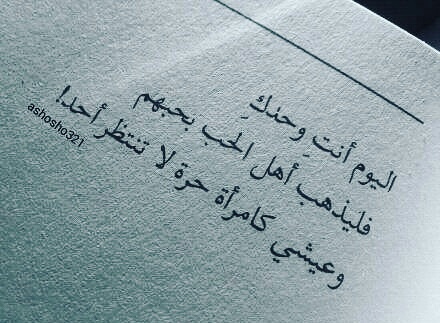 اليوم أنتِ وحدكِ
فليذهب أهل الحب بحبهم
وعيشي كامرأة حرة لا تنتظر أحد!
ashosho321